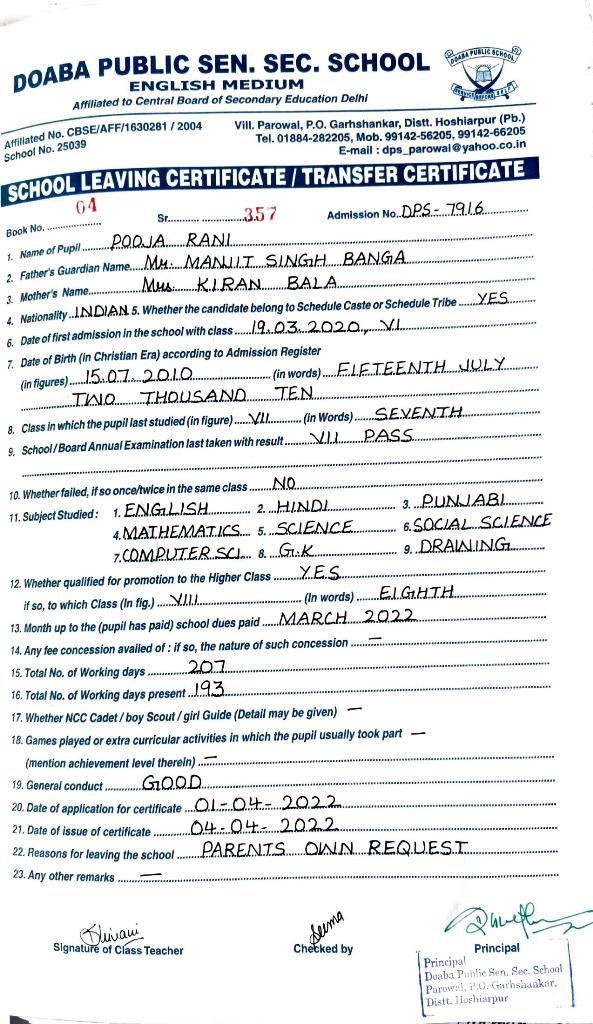 DOABA PUBLIC SEN. SEC. SCHOOL
ENGLISH MEDIUM
Affiliated to Central Board of Secondary Education Delhi
DOABA PUBLIC SCHOOL
SERVICE BEFORE SELF
Affiliated No. CBSE/AFF/1630281 / 2004
School No. 25039
Vill. Parowal, P.O. Garhshankar, Distt. Hoshiarpur (Pb.)
Tel. 01884-282205, Mob. 99142-56205, 99142-66205
E-mail : dps_parowal@yahoo.co.in
SCHOOL LEAVING CERTIFICATE / TRANSFER CERTIFICATE
Book No. 04 Sr. 357 Admission No. DPS-7916
1. Name of Pupil POOJA RANI
2. Father's Guardian Name Mr. MANJIT SINGH BANGA
3. Mother's Name Mrs. KIRAN BALA
4. Nationality INDIAN 5. Whether the candidate belong to Schedule Caste or Schedule Tribe YES
6. Date of first admission in the school with class 19.03.2020, VI
7. Date of Birth (in Christian Era) according to Admission Register
(in figures) 15.07.2010 (in words) FIFTEENTH JULY
TWO THOUSAND TEN
8. Class in which the pupil last studied (in figure) VII (in Words) SEVENTH
9. School / Board Annual Examination last taken with result VII PASS
10. Whether failed, if so once/twice in the same class NO
11. Subject Studied : 1. ENGLISH 2. HINDI 3. PUNJABI
4. MATHEMATICS 5. SCIENCE 6. SOCIAL SCIENCE
7. COMPUTER SCI. 8. G.K 9. DRAINING
12. Whether qualified for promotion to the Higher Class YES
if so, to which Class (In fig.) VIII (In words) EIGHTH
13. Month up to the (pupil has paid) school dues paid MARCH 2022
14. Any fee concession availed of : if so, the nature of such concession —
15. Total No. of Working days 207
16. Total No. of Working days present 193
17. Whether NCC Cadet / boy Scout / girl Guide (Detail may be given) —
18. Games played or extra curricular activities in which the pupil usually took part —
(mention achievement level therein) —
19. General conduct GOOD
20. Date of application for certificate 01-04-2022
21. Date of issue of certificate 04-04-2022
22. Reasons for leaving the school PARENTS OWN REQUEST
23. Any other remarks —
Shivani
Seema
Signature of Class Teacher Checked by Principal
Principal
Doaba Public Sen. Sec. School
Parowal, P.O. Garhshankar,
Distt. Hoshiarpur